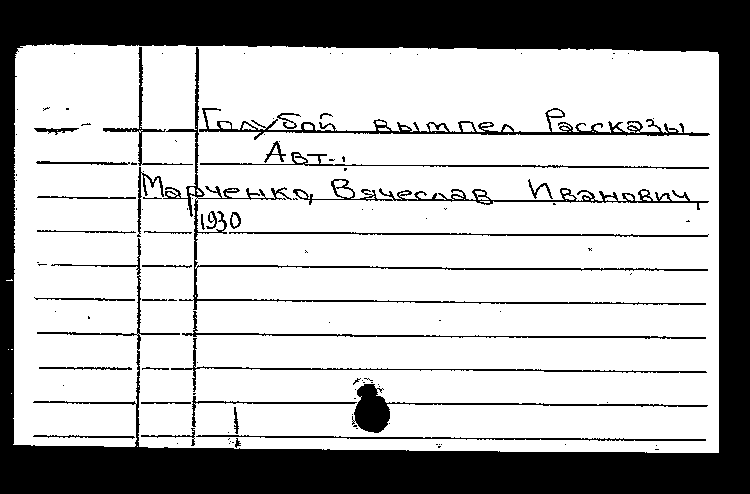 Голубой вымпел Рассказы
Авт.:
Марченко, Вячеслав Иванович,
1930